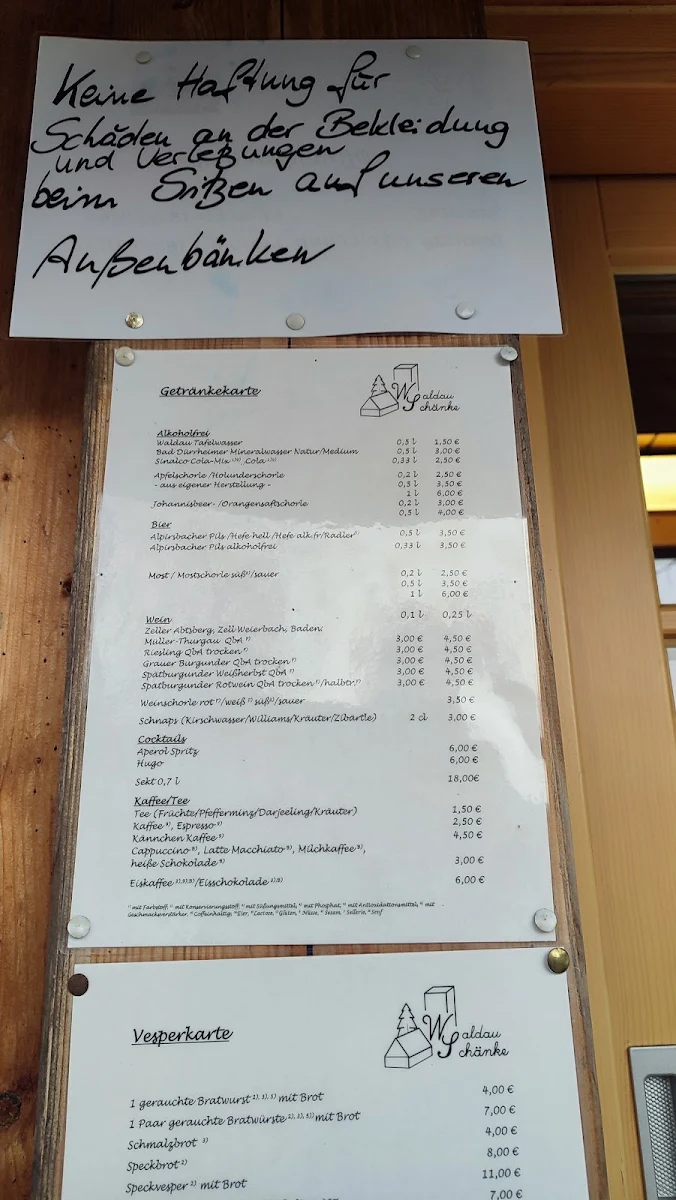 Keine Haftung für
Schäden an der Bekleidung
und Verletzungen
beim Sitzen auf unseren
Außenbänken
Getränkekarte
Waldau
Schänke
Alkoholfrei
Waldau Tafelwasser 0,5 l 1,50 €
Bad Dürrheimer Mineralwasser Natur/Medium 0,5 l 3,00 €
Sinalco Cola-Mix, Cola 0,33 l 2,50 €
Apfelschorle /Holunderschorle 0,2 l 2,50 €
- aus eigener Herstellung - 0,5 l 3,50 €
1 l 6,00 €
Johannisbeer- /Orangensaftschorle 0,2 l 3,00 €
0,5 l 4,00 €
Bier
Alpirsbacher Pils /Hefe hell /Hefe alk.fr/Radler 0,5 l 3,50 €
Alpirsbacher Pils alkoholfrei 0,33 l 3,50 €
Most / Mostschorle süß/sauer 0,2 l 2,50 €
0,5 l 3,50 €
1 l 6,00 €
Wein 0,1 l 0,25 l
Zeller Abtsberg, Zell Weierbach, Baden:
Müller-Thurgau QbA 3,00 € 4,50 €
Riesling QbA trocken 3,00 € 4,50 €
Grauer Burgunder QbA trocken 3,00 € 4,50 €
Spätburgunder Weißherbst QbA 3,00 € 4,50 €
Spätburgunder Rotwein QbA trocken /halbtr. 3,00 € 4,50 €
Weinschorle rot /weiß süß /sauer 3,50 €
Schnaps (Kirschwasser/Williams/Kräuter/Zibärtle) 2 cl 3,00 €
Cocktails
Aperol Spritz 6,00 €
Hugo 6,00 €
Sekt 0,7 l 18,00€
Kaffee/Tee
Tee (Früchte/Pfefferminz/Darjeeling/Kräuter) 1,50 €
Kaffee, Espresso 2,50 €
Kännchen Kaffee 4,50 €
Cappuccino, Latte Macchiato, Milchkaffee,
heiße Schokolade 3,00 €
Eiskaffee /Eisschokolade 6,00 €
mit Farbstoff, mit Konservierungsstoff, mit Süßungsmittel, mit Phosphat, mit Antioxidationsmittel, mit
Geschmacksverstärker, Coffeinhaltig, Eier, Lactose, Gluten, Nüsse, Sesam, Sellerie, Senf
Vesperkarte
Waldau
Schänke
1 gerauchte Bratwurst 2), 3), 5) mit Brot 4,00 €
1 Paar gerauchte Bratwürste 2), 3), 5) mit Brot 7,00 €
Schmalzbrot 3) 4,00 €
Speckbrot 2) 8,00 €
Speckvesper 2) mit Brot 11,00 €
7,00 €